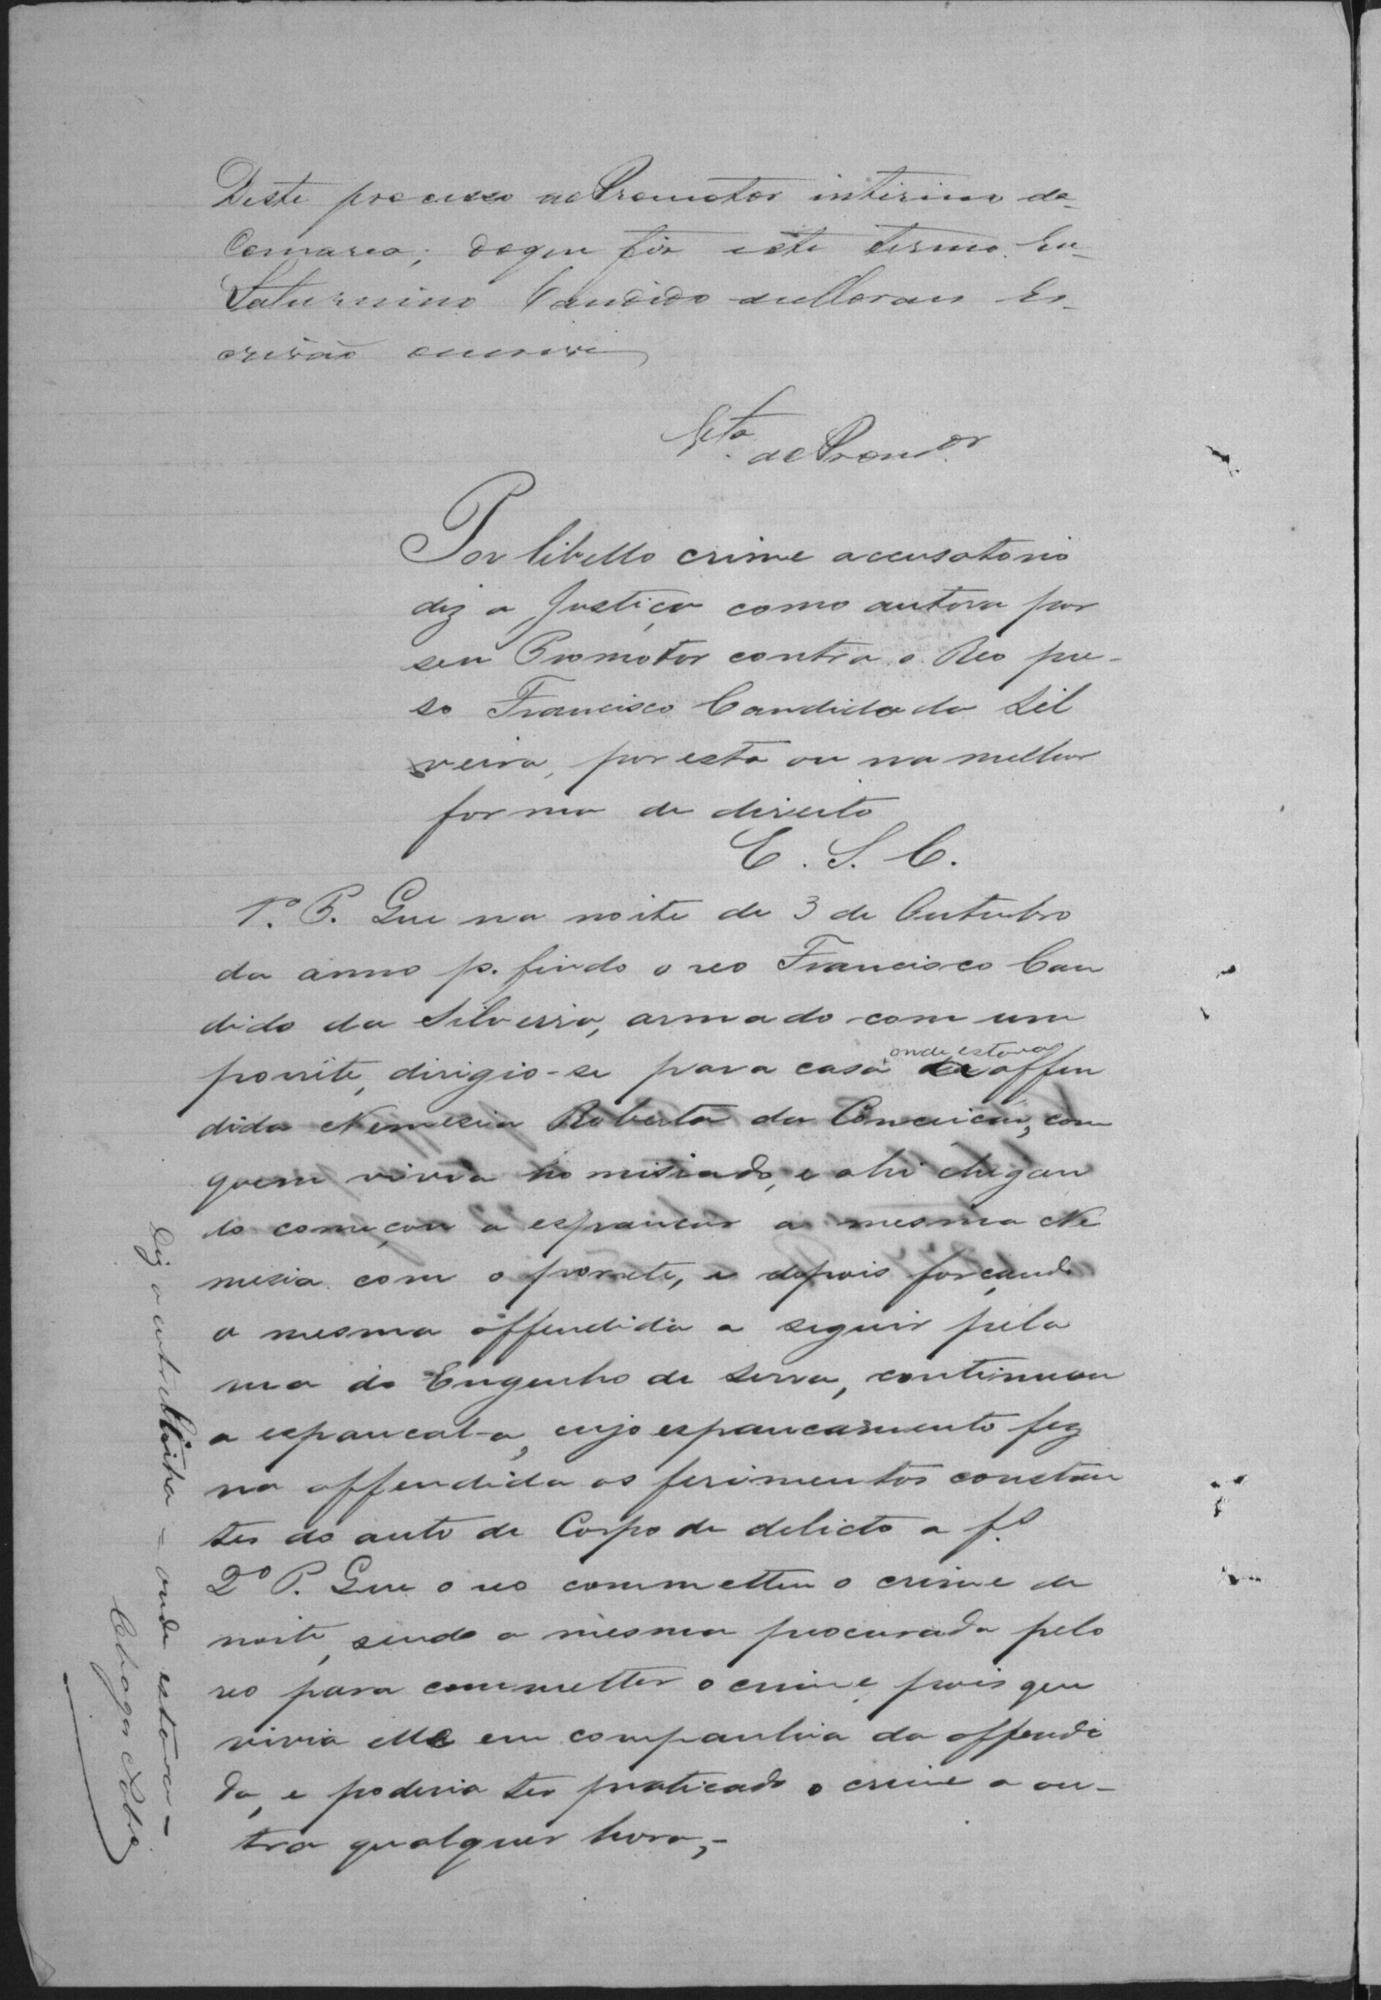 Deste processo ao Promotor interino da
Comarca; doque fiz este termo. Eu
Saturnino Candido de Moraes Es-
crivão escrevi
Vta. ao Promor.
Por libello crime accusatorio
diz a Justiça como autora por
seu Promotor contra o Reo pre-
so Francisco Candido da Sil
veira, por esta ou na melhor
forma de direito
E. S. C.
1.º P. Que na noite de 3 de Outubro
do anno p. findo o reo Francisco Can
dido da Silveira, armado com um
porrête, dirigio-se para casa onde estava a offen
dida Nemesia Roberta da Conceicão, com
quem vivia homisiado, e ahi chegan
do começou a espancar a mesma Ne
mesia com o porrete, e depois forçando
a mesma offendida a seguir pela
rua do Engenho de serra, continuou
a espancal-a, cujo espancamento fez
na offendida os ferimentos constan
tes do auto de Corpo de delicto a fs
2º P. Que o reo commetteu o crime de
noite, sendo a mesma procurada pelo
reo para commetter o crime, pois que
vivia elle em companhia da offendi
da, e poderia ter praticado o crime a ou-
tra qualquer hora,-
Diz a entrelinha - onde estava -
Chagas Lobo